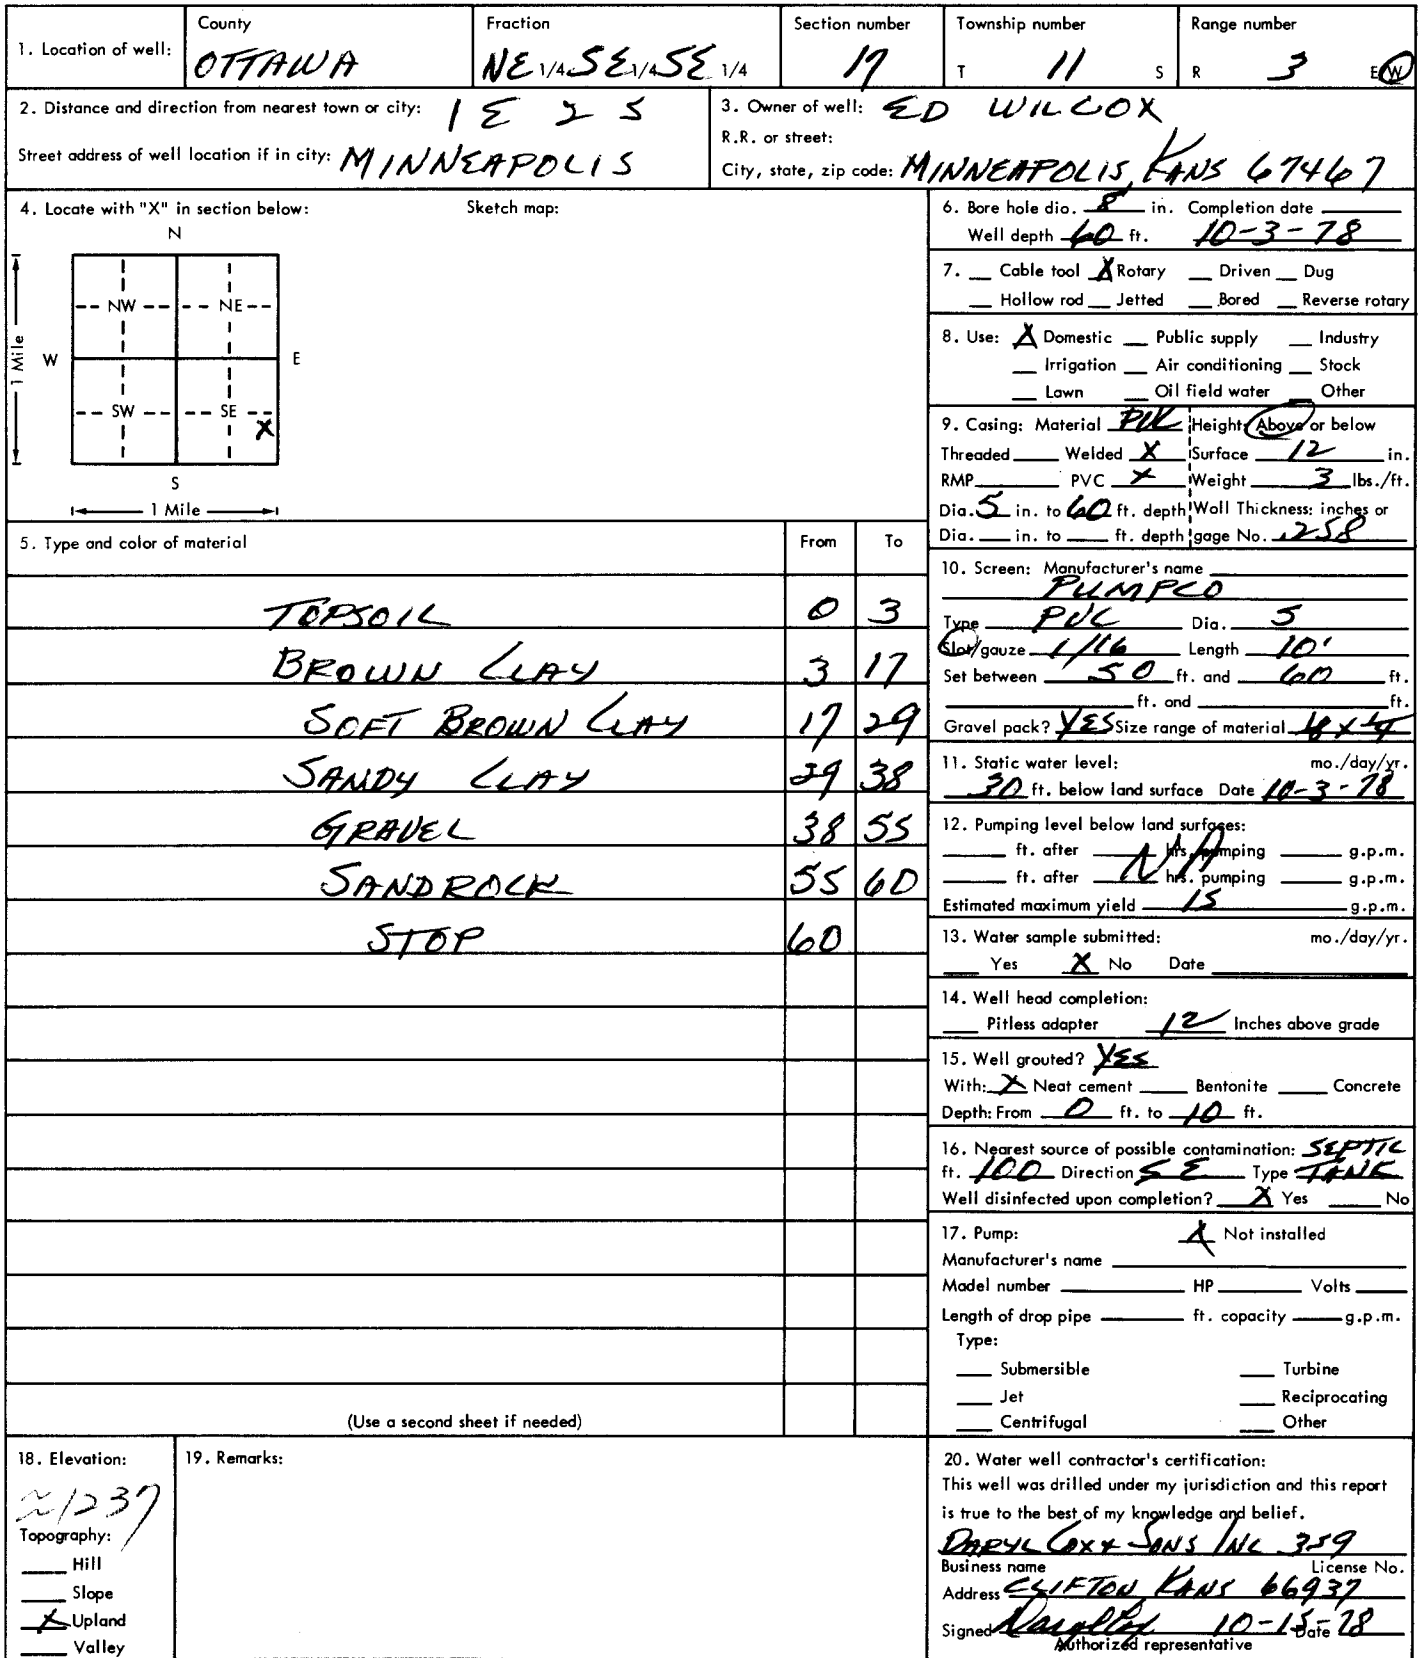 1. Location of well: County OTTAWA Fraction NE 1/4 SE 1/4 SE 1/4 Section number 17 Township number T 11 S Range number R 3 E W
2. Distance and direction from nearest town or city: 1 E 2 S
Street address of well location if in city: MINNEAPOLIS
3. Owner of well: ED WILCOX
R.R. or street:
City, state, zip code: MINNEAPOLIS, KANS 67467
4. Locate with "X" in section below: Sketch map:
N
NW NE
W E
SW SE
X
S
1 Mile
1 Mile
5. Type and color of material From To
TOPSOIL 0 3
BROWN CLAY 3 17
SOFT BROWN CLAY 17 29
SANDY CLAY 29 38
GRAVEL 38 55
SANDROCK 55 60
STOP 60
(Use a second sheet if needed)
6. Bore hole dia. 8 in. Completion date
Well depth 60 ft. 10-3-78
7. Cable tool X Rotary Driven Dug
Hollow rod Jetted Bored Reverse rotary
8. Use: X Domestic Public supply Industry
Irrigation Air conditioning Stock
Lawn Oil field water Other
9. Casing: Material PVC Height: Above or below
Threaded Welded X Surface 12 in.
RMP PVC X Weight 3 lbs./ft.
Dia. 5 in. to 60 ft. depth Wall Thickness: inches or
Dia. in. to ft. depth gage No. .258
10. Screen: Manufacturer's name
PUMPCO
Type PVC Dia. 5
Slot/gauze 1/16 Length 10'
Set between 50 ft. and 60 ft.
ft. and ft.
Gravel pack? YES Size range of material
11. Static water level: mo./day/yr.
30 ft. below land surface Date 10-3-78
12. Pumping level below land surfaces:
ft. after hrs. pumping g.p.m.
NA
ft. after hrs. pumping g.p.m.
Estimated maximum yield 15 g.p.m.
13. Water sample submitted: mo./day/yr.
Yes X No Date
14. Well head completion:
Pitless adapter 12 Inches above grade
15. Well grouted? YES
With: X Neat cement Bentonite Concrete
Depth: From 0 ft. to 10 ft.
16. Nearest source of possible contamination: SEPTIC
ft. 100 Direction SE Type TANK
Well disinfected upon completion? X Yes No
17. Pump: X Not installed
Manufacturer's name
Model number HP Volts
Length of drop pipe ft. capacity g.p.m.
Type:
Submersible Turbine
Jet Reciprocating
Centrifugal Other
18. Elevation:
≈1237
Topography:
Hill
Slope
X Upland
Valley
19. Remarks:
20. Water well contractor's certification:
This well was drilled under my jurisdiction and this report
is true to the best of my knowledge and belief.
DARYL COX & SONS INC 359
Business name License No.
Address CLIFTON KANS 66937
Signed Daryl Cox 10-15-78 Date
Authorized representative